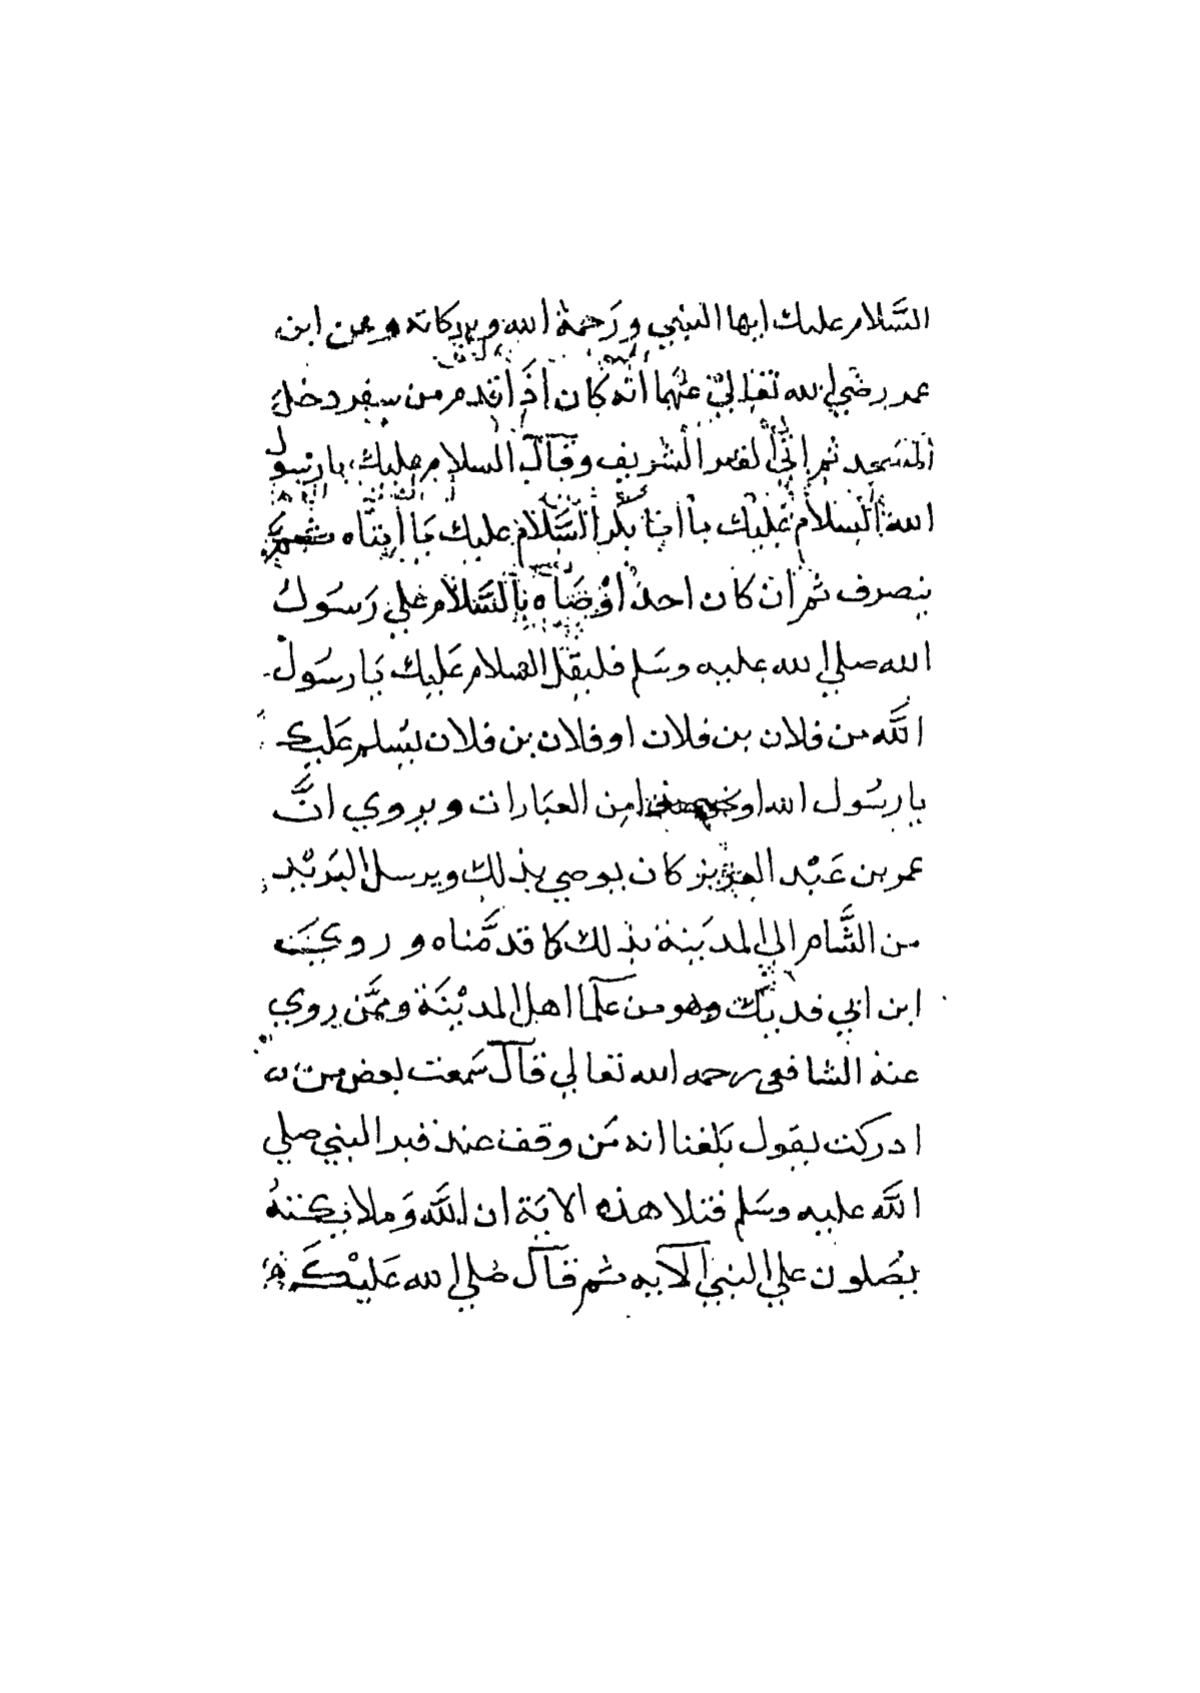 السَّلام عليك ايها النبي وَرَحمة الله وبركاته وعن ابن
عمر رضي الله تعالي عنهما انه كان اذا قدم من سفر دخل
المسجد ثم اتي القبر الشريف وقال السلام عليك يا رسول
الله السلام عليك يا ابا بكر السَّلام عليك يا ابتاه ثم
ينصرف ثم ان كان احد اوصاه بالسَّلام علي رَسُول
الله صلي الله عليه وسَلم فليقل السلام عَليك يَا رسُول
اللَّه من فلان بن فلان او فلان بن فلان يسُلم عَليك
يا رسُول الله او نحو من العبَارات ويروي انَّ
عمر بن عَبْد العزيز كان يوصي بذلك ويرسل البَرَيْد
من الشَّام الي المدَينة بذلك كما قدمَّناه وروي عَن
ابن ابي فديك وهو من علما اهل المديْنَة وممَّن روي
عنه الشافعي رحمه الله تعالي قال سَمعت بعض من
ادركت يقول بَلغنا انه مَن وقف عند قبر النبي صلي
اللَّه عليه وسَلم فتلا هذه الايَة ان اللَّه وَملائكتهُ
يصُلون علي النبي الآيه ثم قال صلي الله عَليْكَ